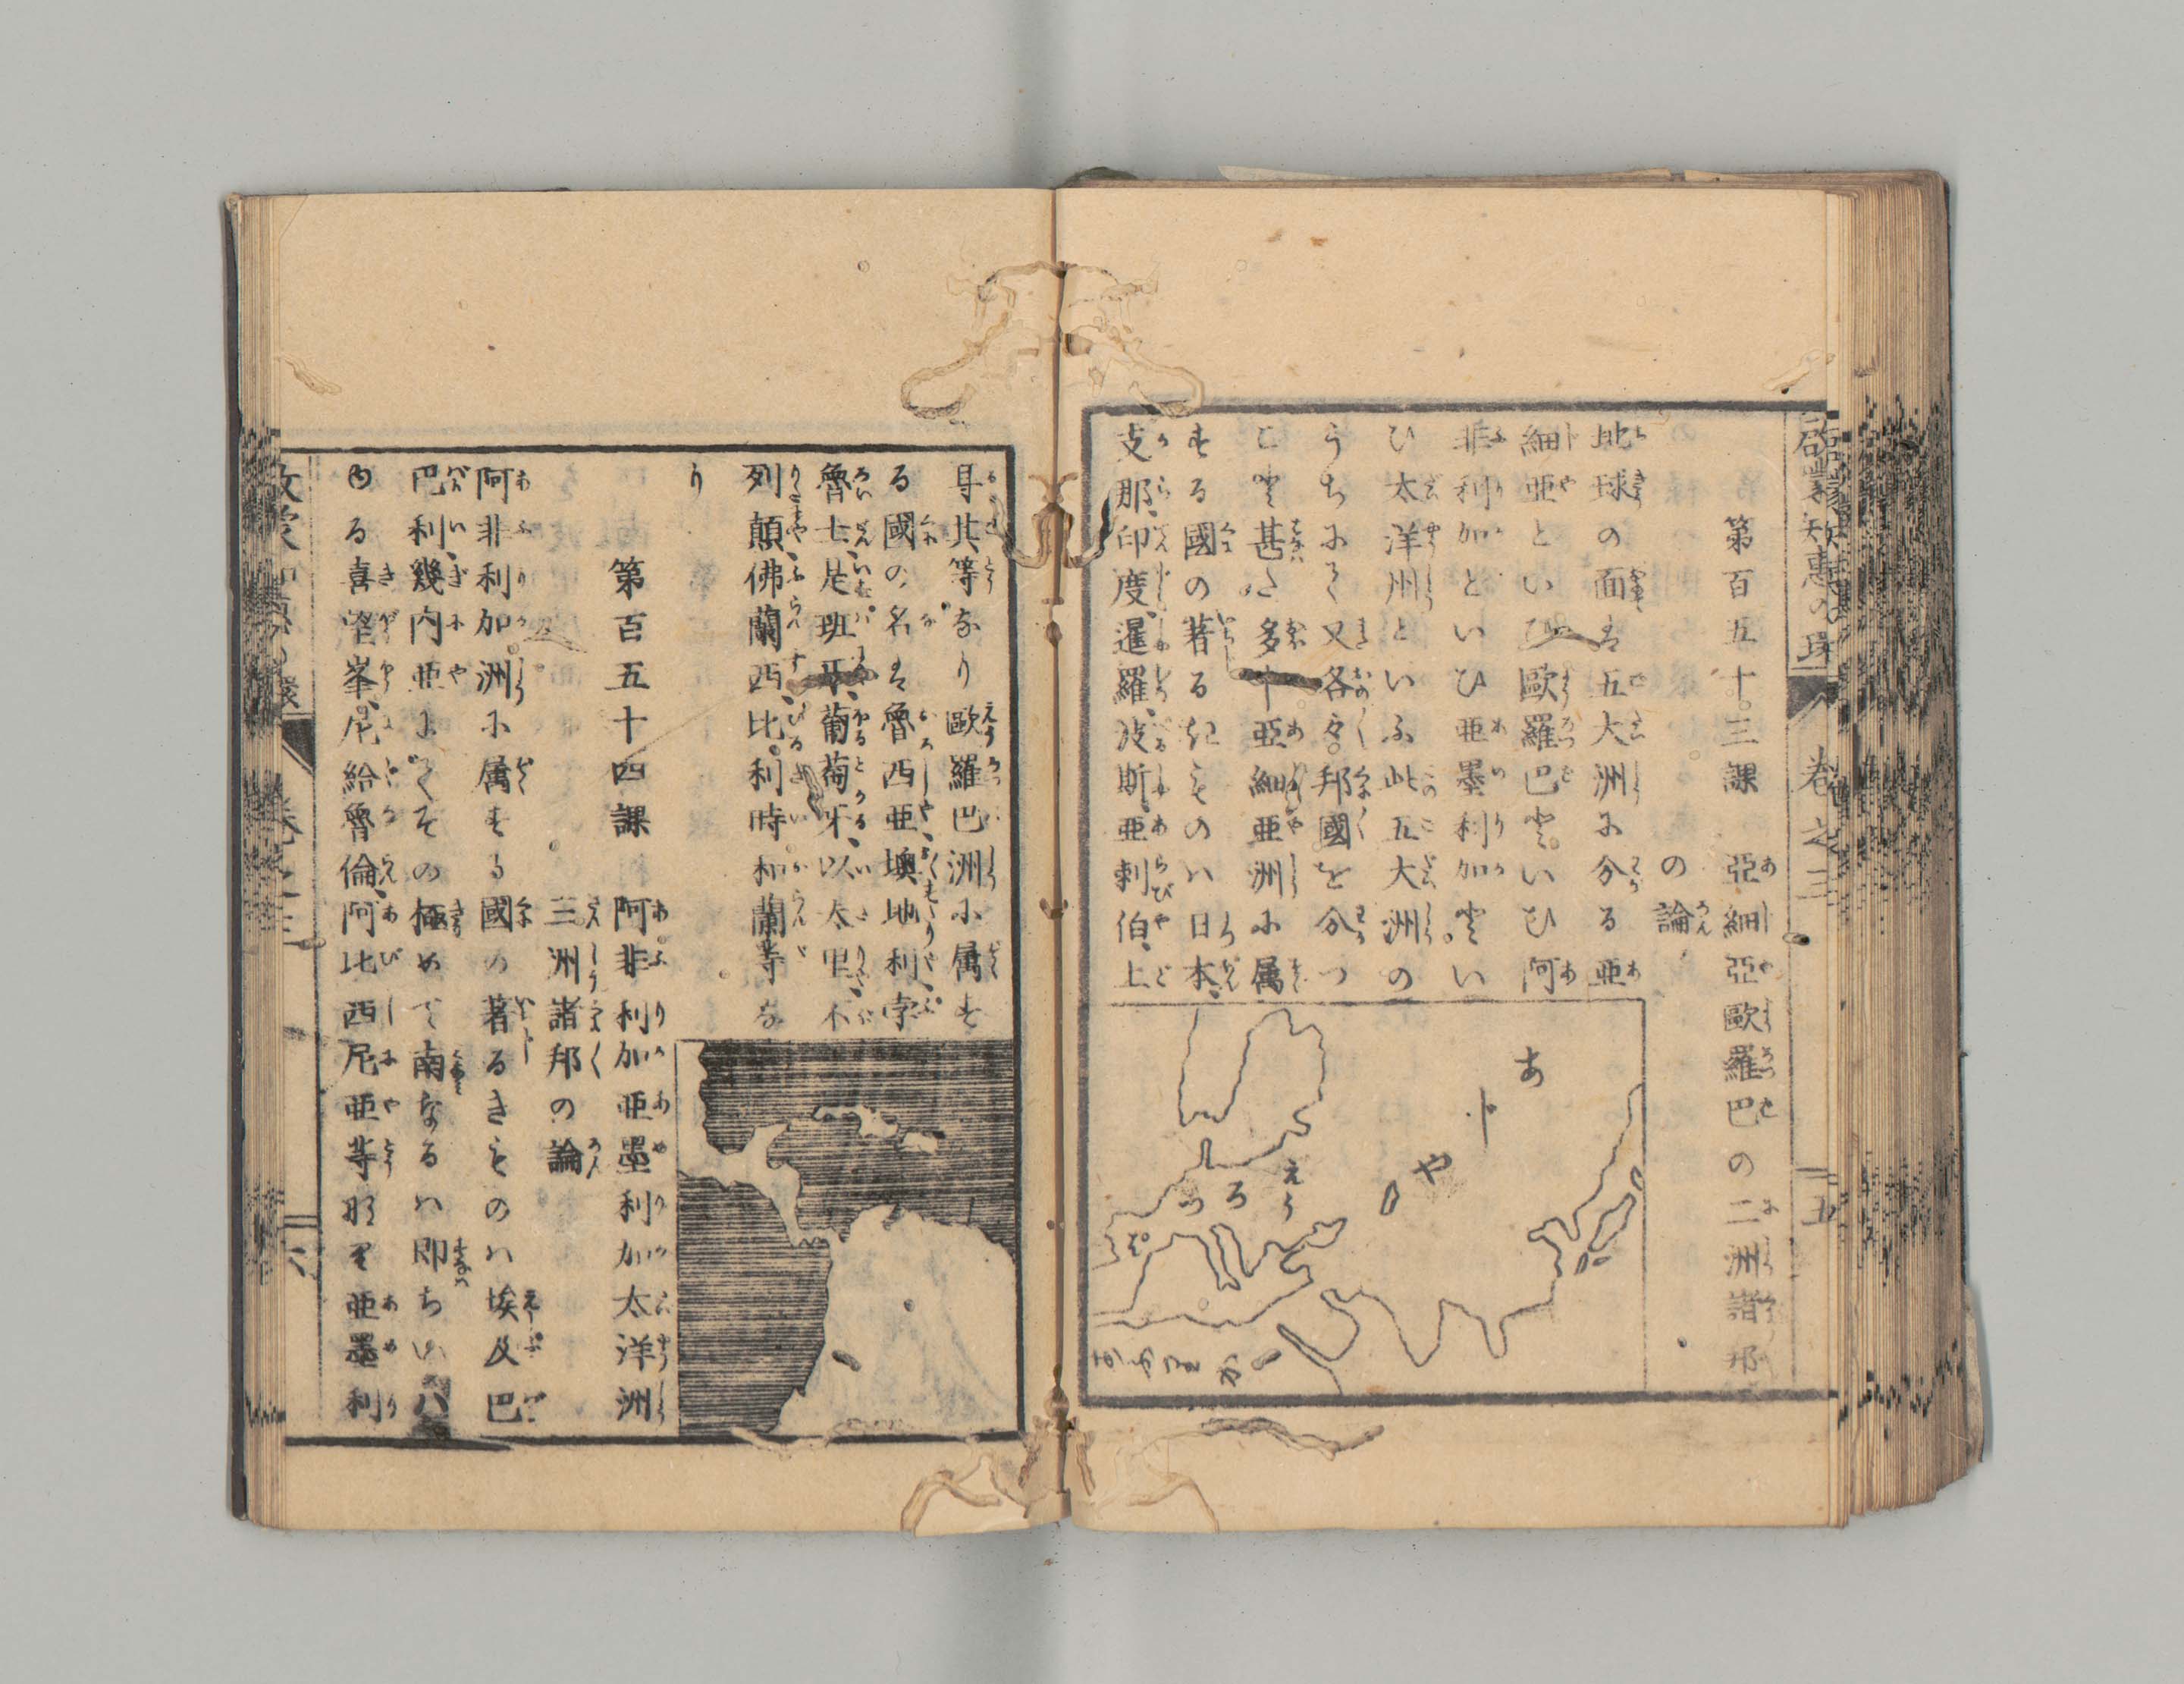 啓蒙知恵の環 卷之三 五
第百五十三課 亞細亞歐羅巴の二洲諸邦
の論
地球の面ハ五大洲に分る亜
細亜といひ歐羅巴といひ阿
非利加といひ亜墨利加とい
ひ太洋州といふ此五大洲の
うちにて又各々邦國を分つ
こと甚だ多し亞細亞洲に属
する國の著るきものハ日本、
支那、印度、暹羅、波斯、亜剌伯、土
あじや
えうろつぱ
あふりか
耳其等なり歐羅巴洲に属す
る國の名ハ魯西亜、墺地利、孛
魯士、是班牙、葡萄牙、以太里、不
列顛、佛蘭西、比利時、和蘭等な
り
第百五十四課 阿非利加亜墨利加太洋洲
三洲諸邦の論
阿非利加洲に属する國の著るきものハ埃及巴
巴利幾内亜にてその極めて南なるハ即ち
る喜望峯、尼給魯倫、阿比西尼亜等那り亜墨利
啓蒙知恵の環 卷之三 六